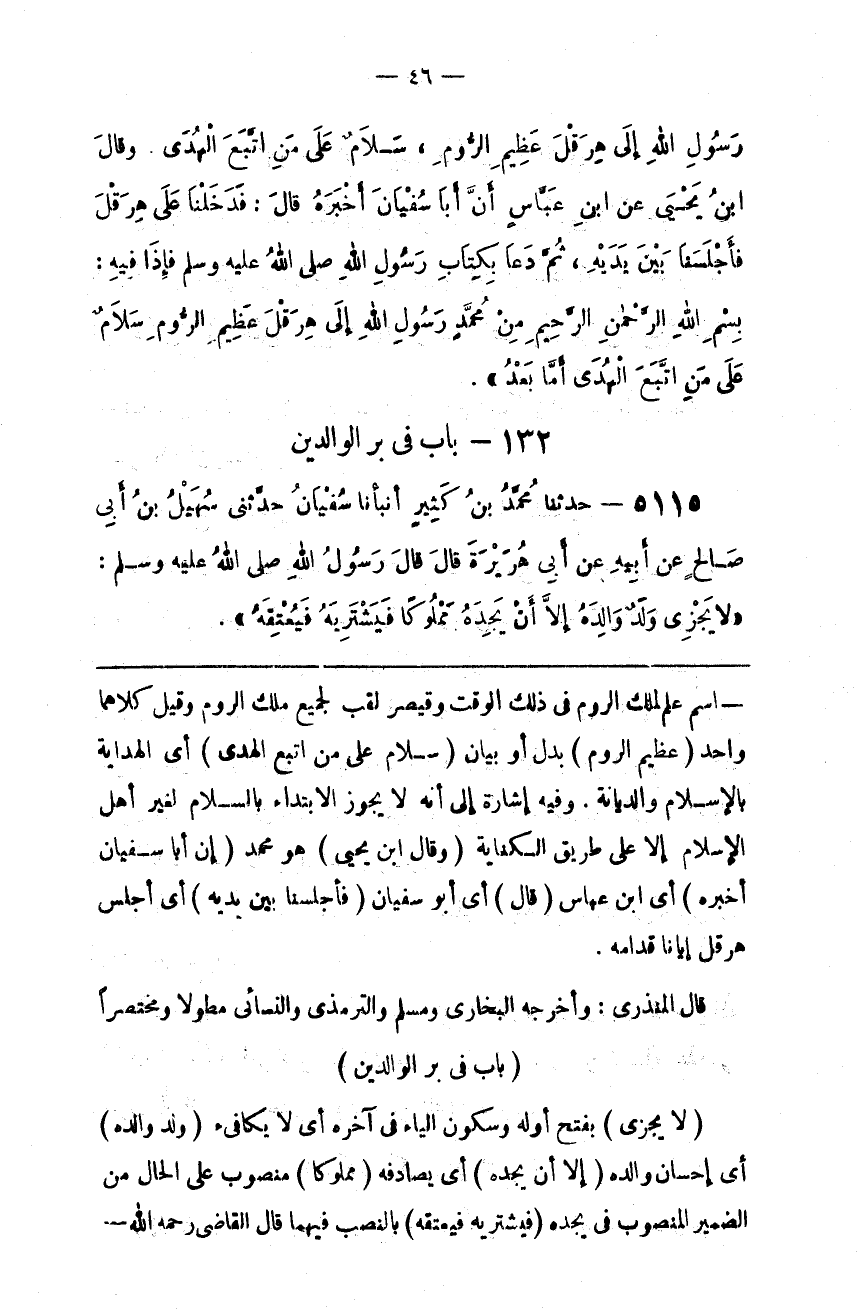 — ٤٦ —
رَسُولِ اللهِ إلَى هِرَقْلَ عَظِيمِ الرُّومِ ، سَلاَمٌ عَلَى مَنِ اتَّبَعَ الْهُدَى . وقالَ
ابنُ يَحْيَى عن ابنِ عَبَّاسٍ أَنَّ أَبَا سُفْيَانَ أَخْبَرَهُ قالَ : فَدَخَلْنَا عَلَى هِرَقْلَ
فأَجْلَسَنَا بَيْنَ يَدَيْهِ ، ثُمَّ دَعَا بِكِتَابِ رَسُولِ اللهِ صلى اللهُ عليه وسلم فإِذَا فِيهِ :
بِسْمِ اللهِ الرَّحْمٰنِ الرَّحِيمِ مِنْ مُحَمَّدٍ رَسُولِ اللهِ إلَى هِرَقْلَ عَظِيمِ الرُّومِ سَلاَمٌ
عَلَى مَنِ اتَّبَعَ الْهُدَى أَمَّا بَعْدُ » .
١٣٢ – باب فى بر الوالدين
٥١١٥ – حدثنا مُحَمَّدُ بنُ كَثِيرٍ أنبأنا سُفْيَانُ حدَّثنى سُهَيْلُ بنُ أَبِي
صَالحٍ عن أَبِيهِ عن أَبِي هُرَيْرَةَ قالَ قالَ رَسُولُ اللهِ صلى اللهُ عليه وسلم :
« لا يَجْزِى وَلَدٌ وَالِدَهُ إلاَّ أَنْ يَجِدَهُ مَمْلُوكًا فَيَشْتَرِيَهُ فَيُعْتِقَهُ » .
— اسم علم لملك الروم فى ذلك الوقت وقيصر لقب لجميع ملك الروم وقيل كلاهما
واحد ( عظيم الروم ) بدل أو بيان ( سلام على من اتبع الهدى ) أى الهداية
بالإسلام والديانة . وفيه إشارة إلى أنه لا يجوز الابتداء بالسلام لغير أهل
الإسلام إلا على طريق الكفاية ( وقال ابن يحيى ) هو محمد ( إن أبا سفيان
أخبره ) أى ابن عباس ( قال ) أى أبو سفيان ( فأجلسنا بين يديه ) أى أجلس
هرقل إيانا قدامه .
قال المنذرى : وأخرجه البخارى ومسلم والترمذى والنسائى مطولا ومختصراً
( باب فى بر الوالدين )
( لا يجزى ) بفتح أوله وسكون الياء فى آخره أى لا يكافىء ( ولد والده )
أى إحسان والده ( إلا أن يجده ) أى يصادفه ( مملوكا ) منصوب على الحال من
الضمير المنصوب فى يجده ( فيشتريه فيعتقه ) بالنصب فيهما قال القاضى رحمه الله —